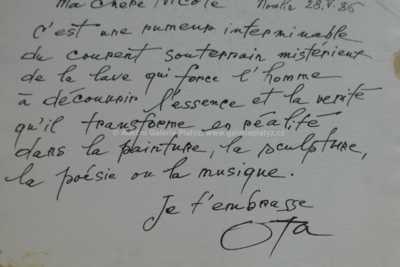 Ma Chère Nicole 28.V.86
C'est une rumeur interminable
du courent souterrain mistérieux
de la lave qui force l'homme
à découvrir l'essence et la verité
qu'il transforme en réalité
© Galerie Platýz www.galerieplatyz.cz
dans la painture, la sculpture,
la poésie ou la musique.
Je t'embrasse
Ota